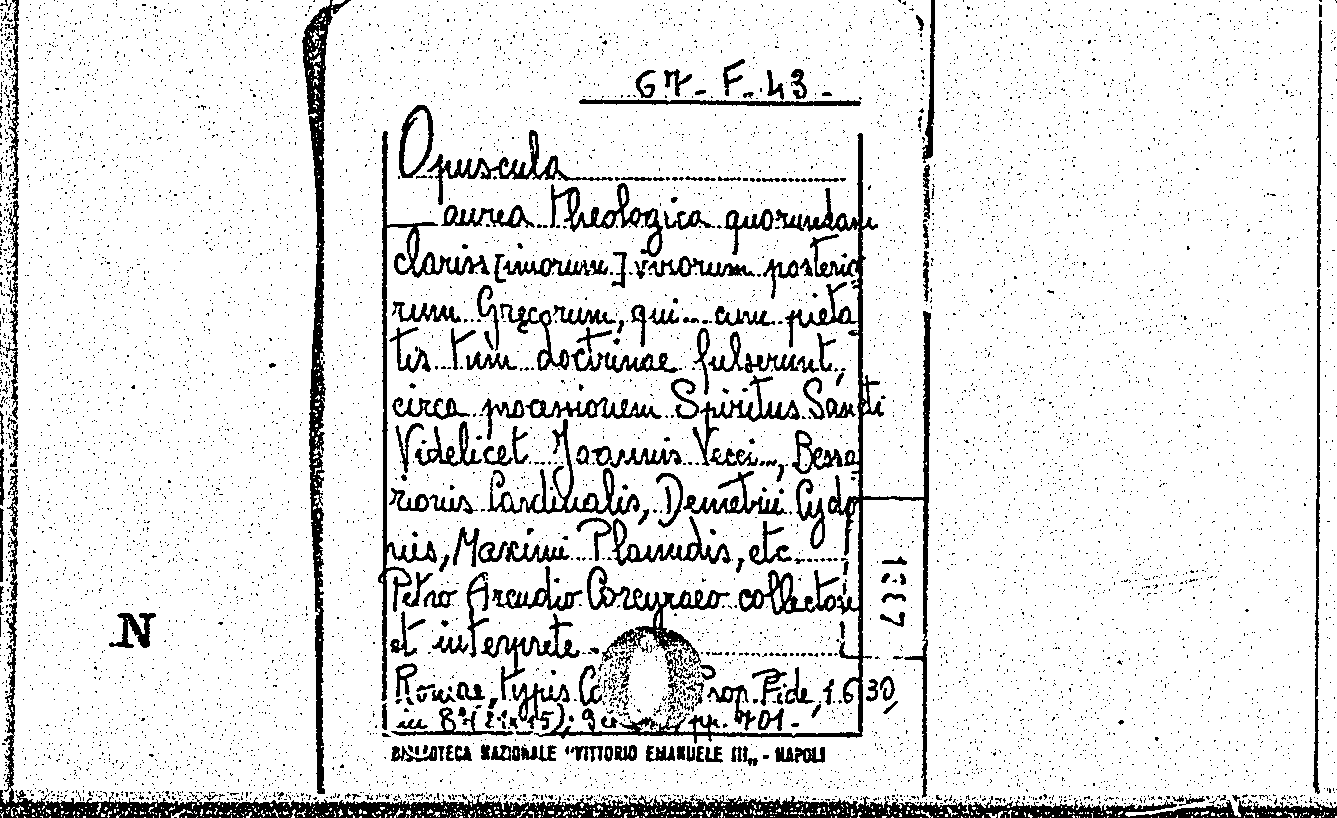 67-F-43-
Opuscula
aurea Theologica quorundam
clariss[imorum] virorum posterio
rum Gręcorum, qui cum pieta
tis tum doctrinae fulserunt,
circa processionem Spiritus Sancti
Videlicet Joannis Vecci, Bessa
rionis Cardinalis, Demetrii Cydo
nis, Maximi Planudis, etc.
Petro Arcudio Corcyraeo collectore
et interprete.
Romae, typis Co Prop. Fide, 1630,
in 8° (21x15); pp. 701-
BIBLIOTECA NAZIONALE "VITTORIO EMANUELE III„ - NAPOLI
N